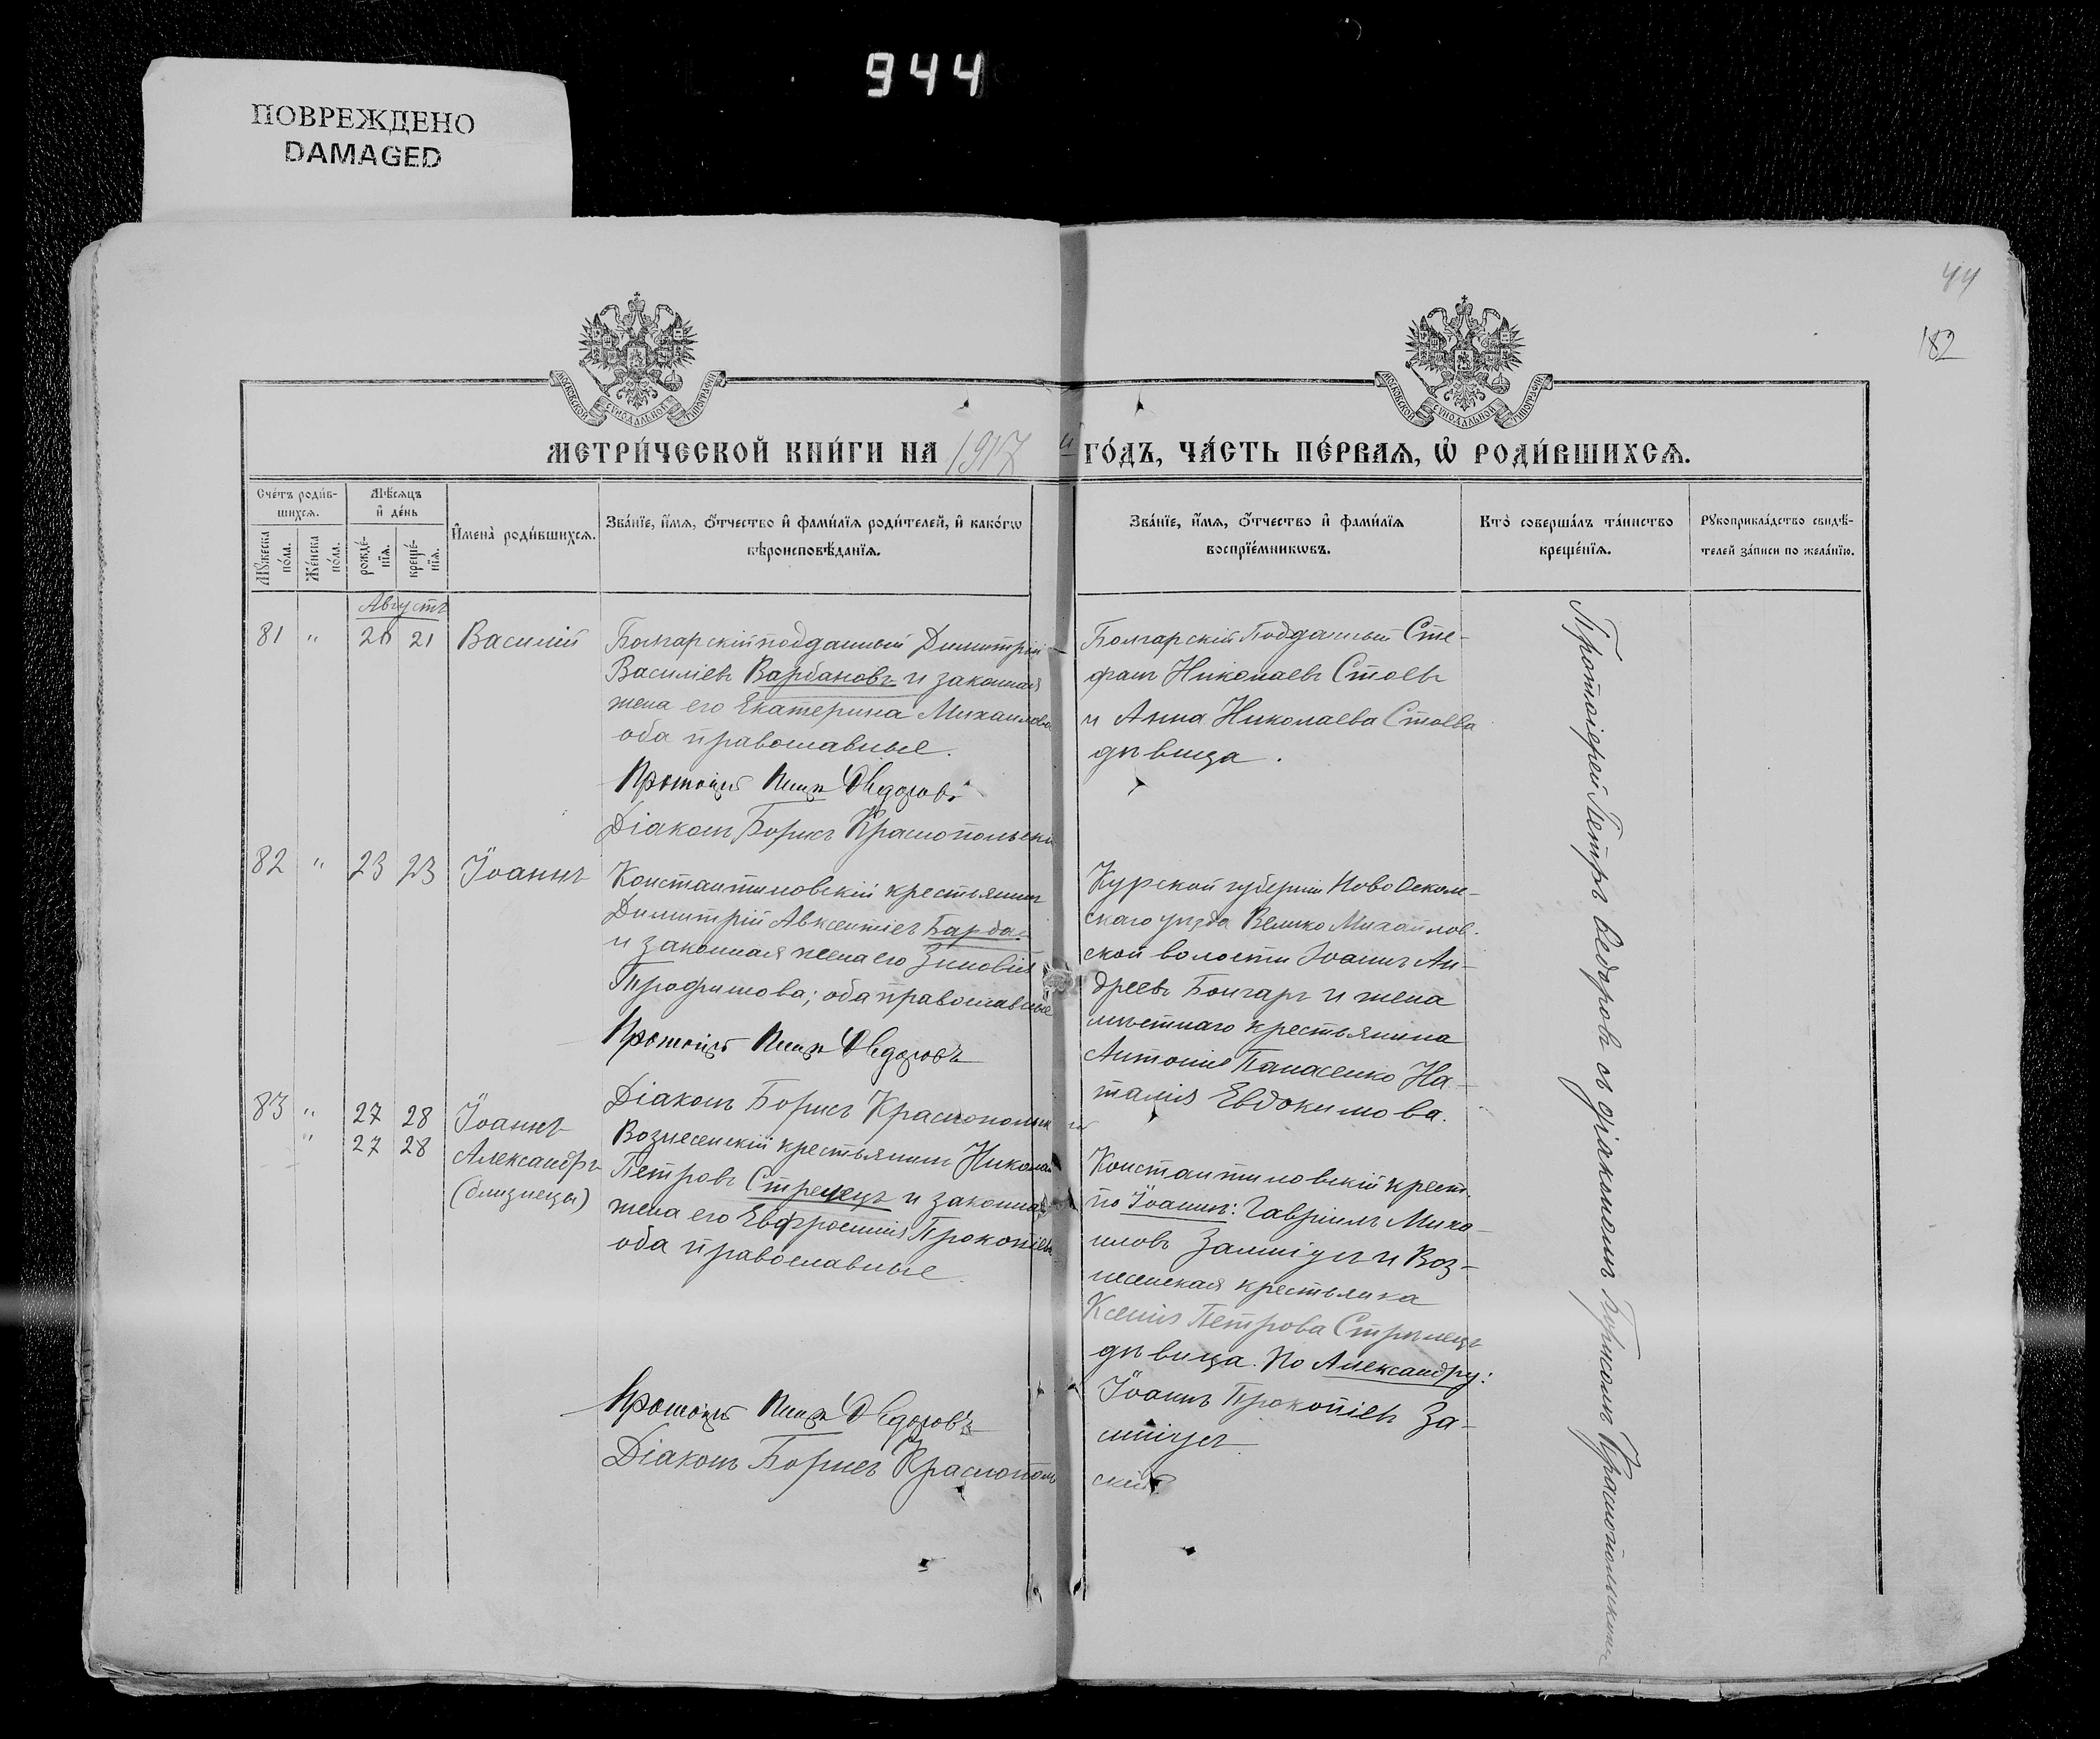 944
ПОВРЕЖДЕНО
DAMAGED
44
182
МОСКОВСКОЙ СѴНОДАЛЬНОЙ ТИПОГРАФИИ
МОСКОВСКОЙ СѴНОДАЛЬНОЙ ТИПОГРАФИИ
МЕТРИ́ЧЕСКОЙ КНИ́ГИ НА 1917 й ГО́ДЪ, ЧА́СТЬ ПЕ́РВАѦ, Ѡ҆ РОДИ́ВШИХСѦ.
Сче́тъ роди́в-
шихсѧ.
Мꙋ́жеска
по́ла.
Же́нска
по́ла.
Мѣ́сѧцъ
и҆ де́нь
рожде́-
нїѧ.
креще́-
нїѧ.
И҆мена̀ роди́вшихсѧ.
Зва́нїе, и҆́мѧ, ѻ҆́тчество и҆ фами́лїѧ роди́телей, и҆ како́гѡ
вѣроисповѣ́данїѧ.
Зва́нїе, и҆́мѧ, ѻ҆́тчество и҆ фами́лїѧ
воспрїе́мникѡвъ.
Кто̀ соверша́лъ та́инство
креще́нїѧ.
Рꙋкоприкла́дство свидѣ́-
телей за́писи по жела́нїю.
Августъ
81 " 20 21 Василій
Болгарскій подданный Димитрій
Василіевъ Варбановъ и законная
жена его Екатерина Михаилова
оба православные.
Протоіерей Петръ Ѳедоровъ
Діаконъ Борисъ Краснопольскій
Болгарскій Подданный Сте-
фанъ Николаевъ Стоевъ
и Анна Николаева Стоева
дѣвица.
82 " 23 23 Іоаннъ
Константиновскій крестьянинъ
Димитрій Авксентіевъ Барда
и законная жена его Зиновія
Трофимова; оба православные
Протоіерей Петръ Ѳедоровъ
Діаконъ Борисъ Краснопольскій
Курской губерніи Ново Осколь-
скаго уѣзда Велико Михайлов-
ской волости Іоаннъ Ан-
дреевъ Болгаръ и жена
мѣстнаго крестьянина
Антонія Панасенко На-
талія Евдокимова.
83 " 27 28 Іоаннъ
" 27 28 Александръ
(близнецы)
Вознесенскій крестьянинъ Николай
Петровъ Стрелецъ и законная
жена его Евфросинія Прокопіева
оба православные.
Протоіерей Петръ Ѳедоровъ
Діаконъ Борисъ Краснополь
скій
Константиновскій крест.
по Іоанну: Гавріилъ Миха-
иловъ и Воз-
несенская крестьянка
Ксенія Петрова Стрелецъ
дѣвица. По Александру:
Іоаннъ Прокопіевъ За-
Протоіерей Петръ Ѳедоровъ съ діакономъ Борисомъ Краснопольскимъ